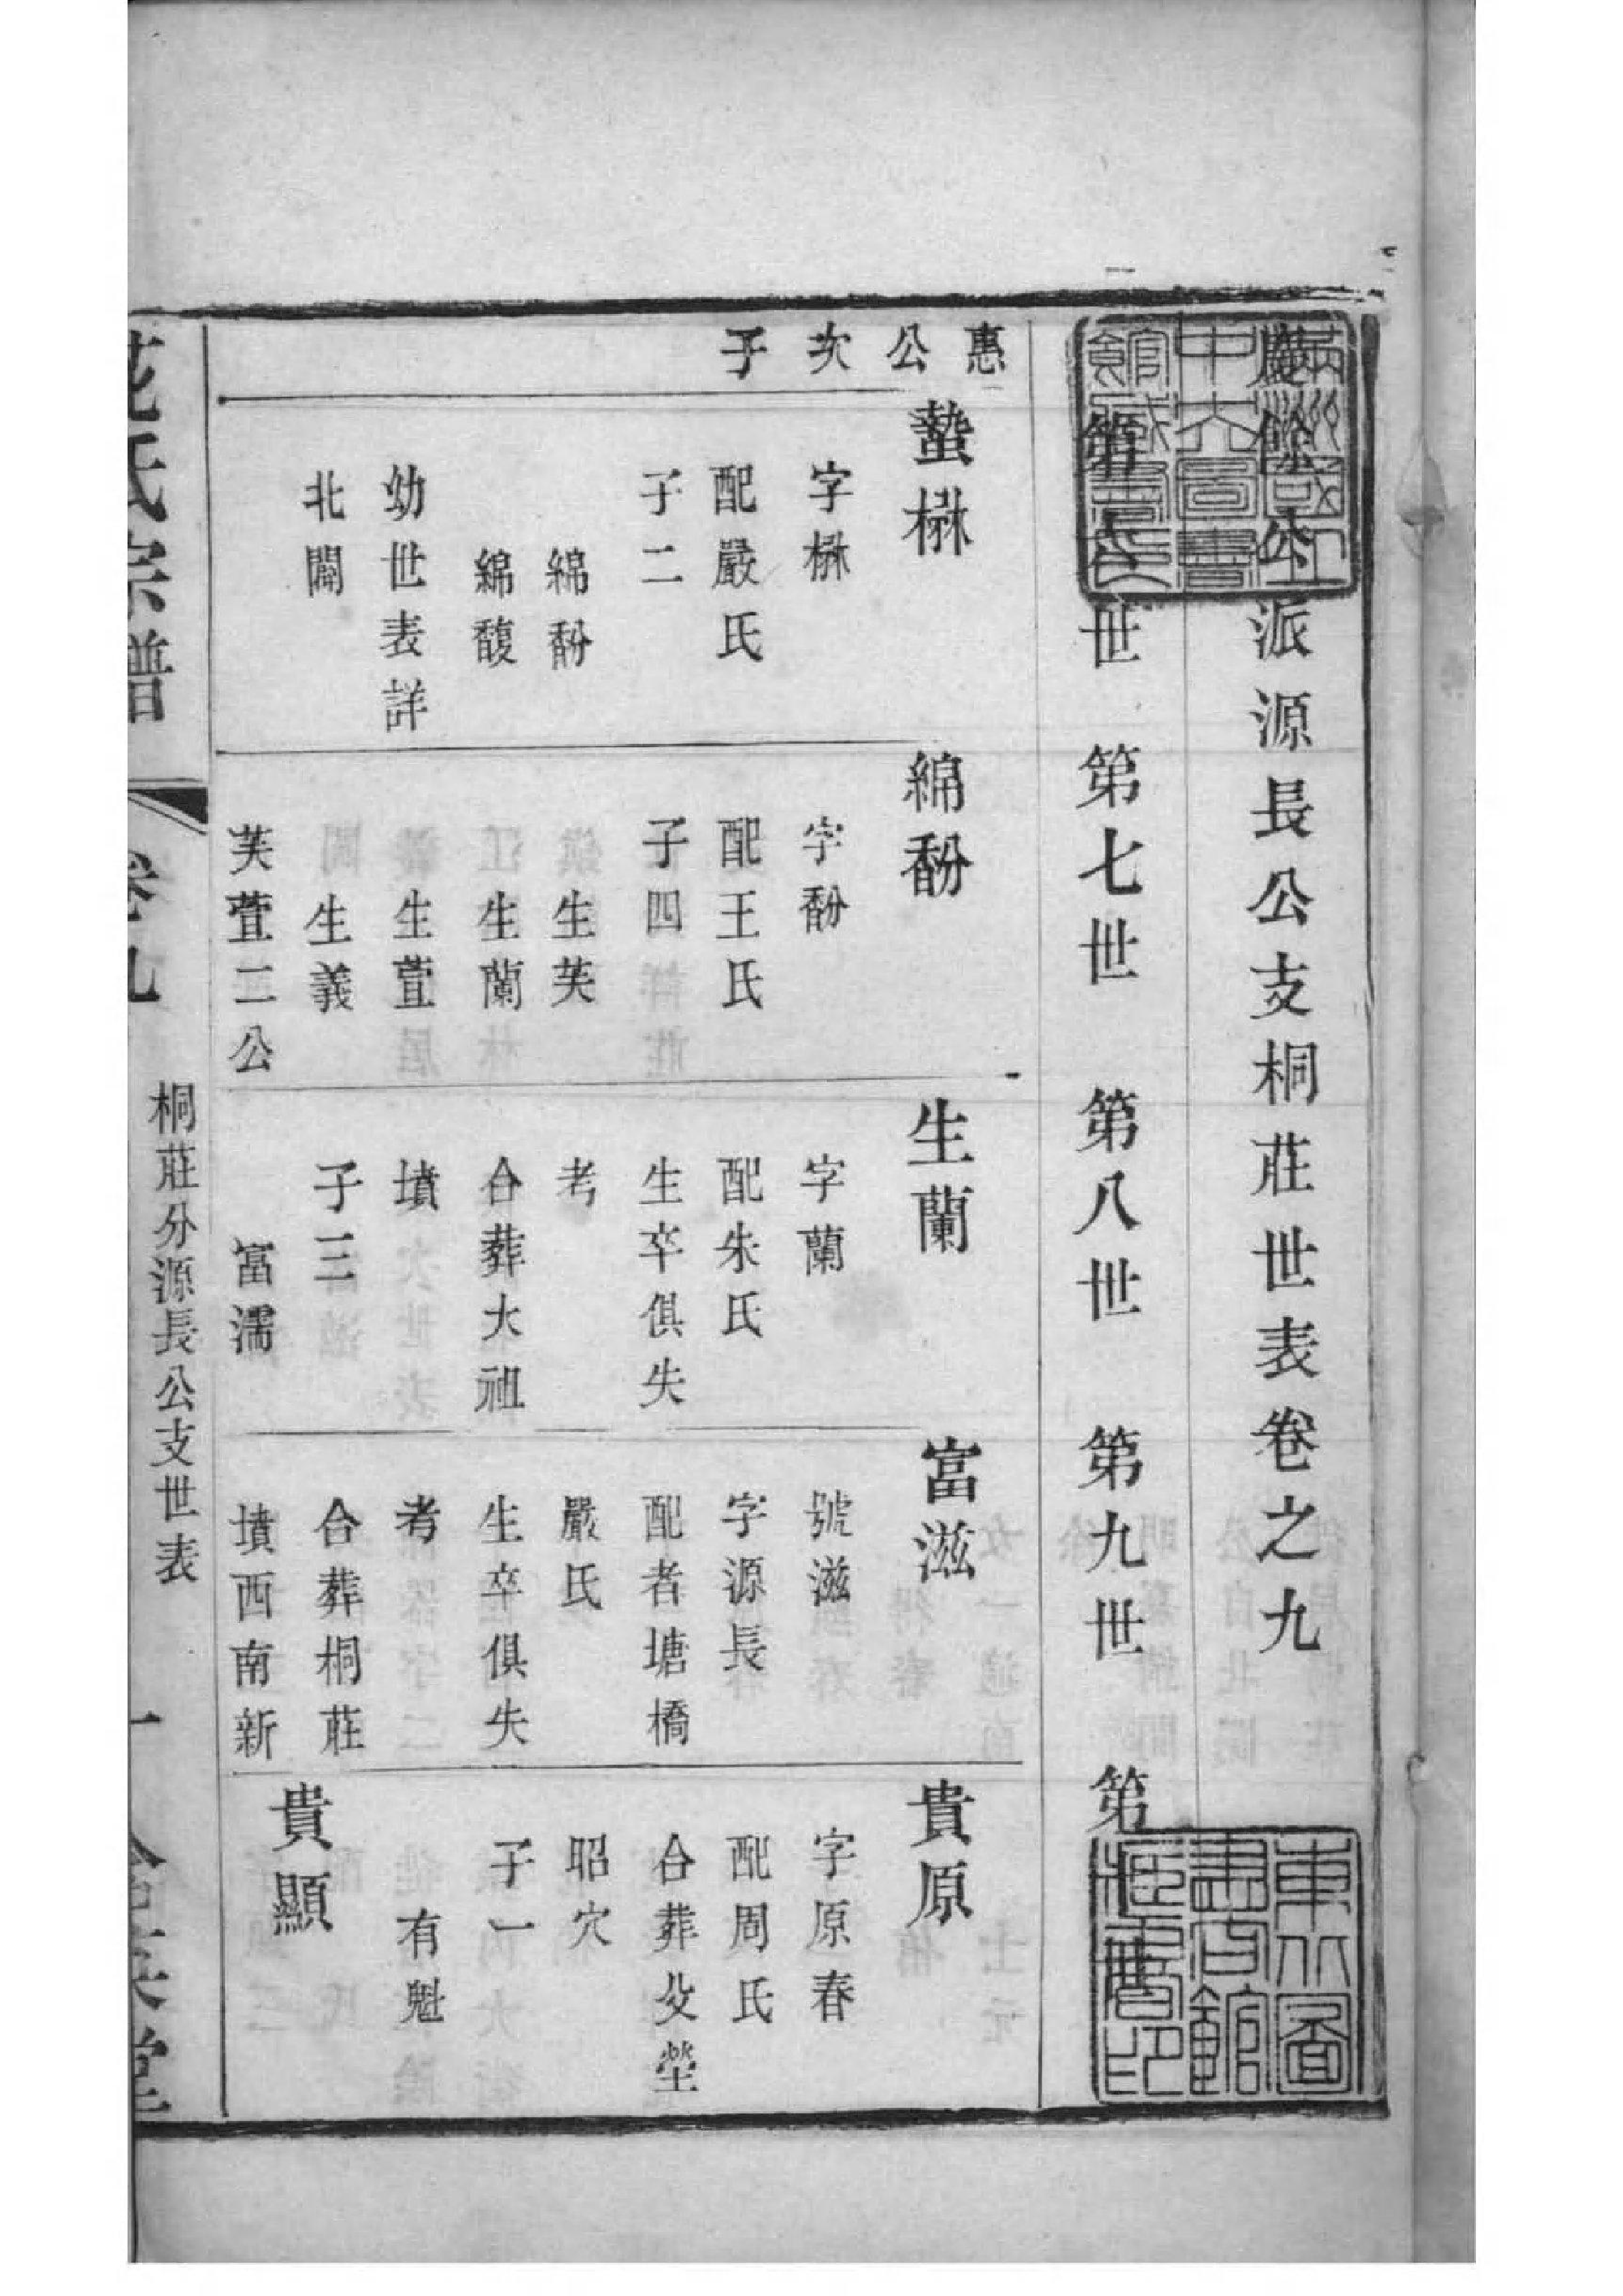 慶餘公派源長公支桐莊世表卷之九
第六世 第七世 第八世 第九世 第十世
惠
公
次
子
蟄楙
字楙
配嚴氏
子二
綿馚
綿馥
幼世表詳
北閧
綿馚
字馚
配王氏
子四
生芙
生蘭
生萱
生義
芙萱二公
生蘭
字蘭
配朱氏
生卒俱失
考
合葬大祖
墳
子三
富濡
富滋
號滋
字源長
配者塘橋
嚴氏
生卒俱失
考
合葬桐莊
墳西南新
貴原
字原春
配周氏
合葬父塋
昭穴
子一
有魁
貴顯
氏宗譜
卷九
桐莊分源長公支世表
一
堂